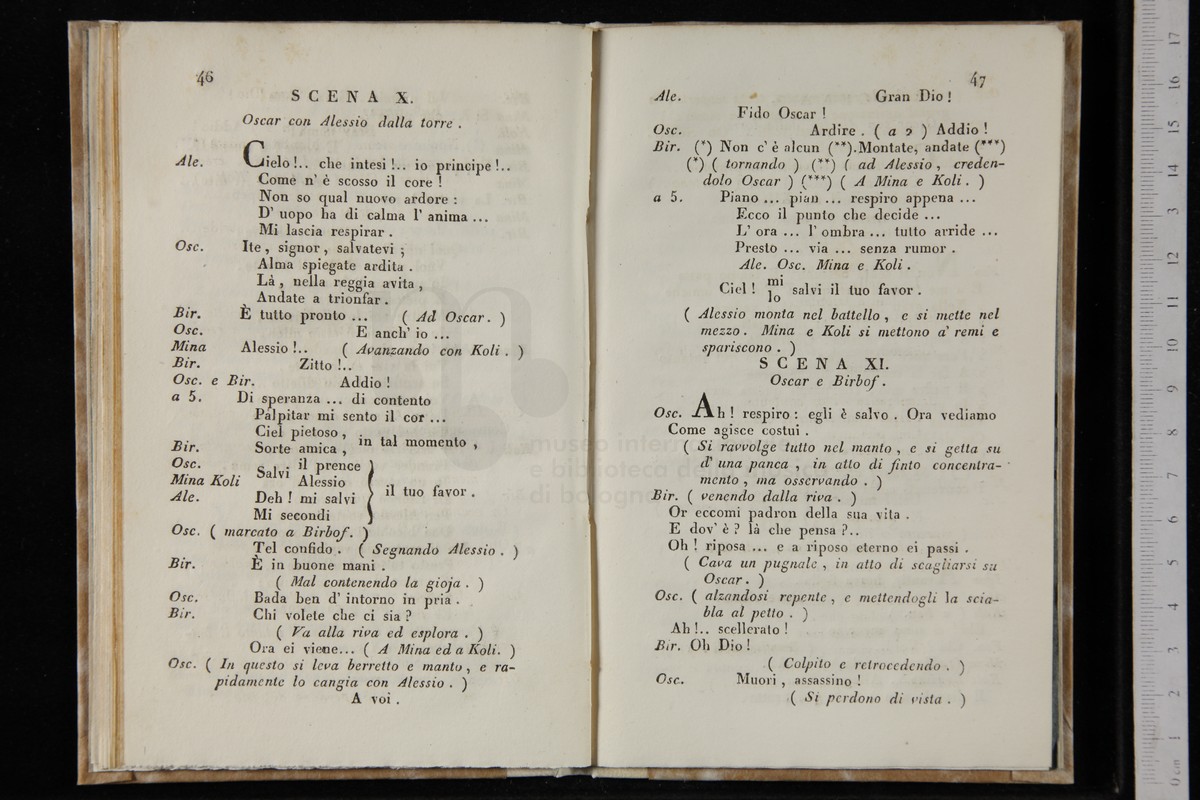 46
SCENA X.
Oscar con Alessio dalla torre .
Ale. Cielo !.. che intesi !.. io principe !..
Come n' è scosso il core !
Non so qual nuovo ardore :
D' uopo ha di calma l' anima ...
Mi lascia respirar .
Osc. Ite , signor , salvatevi ;
Alma spiegate ardita .
Là , nella reggia avita ,
Andate a trionfar .
Bir. È tutto pronto ... ( Ad Oscar. )
Osc. E anch' io ...
Mina Alessio !.. ( Avanzando con Koli . )
Bir. Zitto !..
Osc. e Bir. Addio !
a 5. Di speranza ... di contento
Palpitar mi sento il cor ...
Ciel pietoso ,
in tal momento ,
Bir. Sorte amica ,
Osc. Salvi il prence
Mina Koli Alessio
il tuo favor .
Ale. Deh ! mi salvi
Mi secondi
Osc. ( marcato a Birbof. )
Tel confido . ( Segnando Alessio . )
Bir. È in buone mani .
( Mal contenendo la gioja . )
Osc. Bada ben d' intorno in pria .
Bir. Chi volete che ci sia ?
( Va alla riva ed esplora . )
Ora ei viene... ( A Mina ed a Koli. )
Osc. ( In questo si leva berretto e manto , e ra-
pidamente lo cangia con Alessio . )
A voi .
47
Ale. Gran Dio !
Fido Oscar !
Osc. Ardire . ( a 2 ) Addio !
Bir. (*) Non c' è alcun (**).Montate, andate (***)
(*) ( tornando ) (**) ( ad Alessio , creden-
dolo Oscar ) (***) ( A Mina e Koli. )
a 5. Piano ... pian ... respiro appena ...
Ecco il punto che decide ...
L' ora ... l' ombra ... tutto arride ...
Presto ... via ... senza rumor .
Ale. Osc. Mina e Koli .
Ciel ! mi
lo salvi il tuo favor .
( Alessio monta nel battello , e si mette nel
mezzo . Mina e Koli si mettono a' remi e
spariscono . )
SCENA XI.
Oscar e Birbof .
Osc. Ah ! respiro : egli è salvo . Ora vediamo
Come agisce costui .
( Si ravvolge tutto nel manto , e si getta su
d' una panca , in atto di finto concentra-
mento , ma osservando . )
Bir. ( venendo dalla riva . )
Or eccomi padron della sua vita .
E dov' è ? là che pensa ?..
Oh ! riposa ... e a riposo eterno ei passi .
( Cava un pugnale , in atto di scagliarsi su
Oscar . )
Osc. ( alzandosi repente , e mettendogli la scia-
bla al petto . )
Ah !.. scellerato !
Bir. Oh Dio !
( Colpito e retrocedendo . )
Osc. Muori , assassino !
( Si perdono di vista . )
museo internazionale
e biblioteca della musica
di bologna
0 cm 1 2 3 4 5 6 7 8 9 10 11 12 13 14 15 16 17